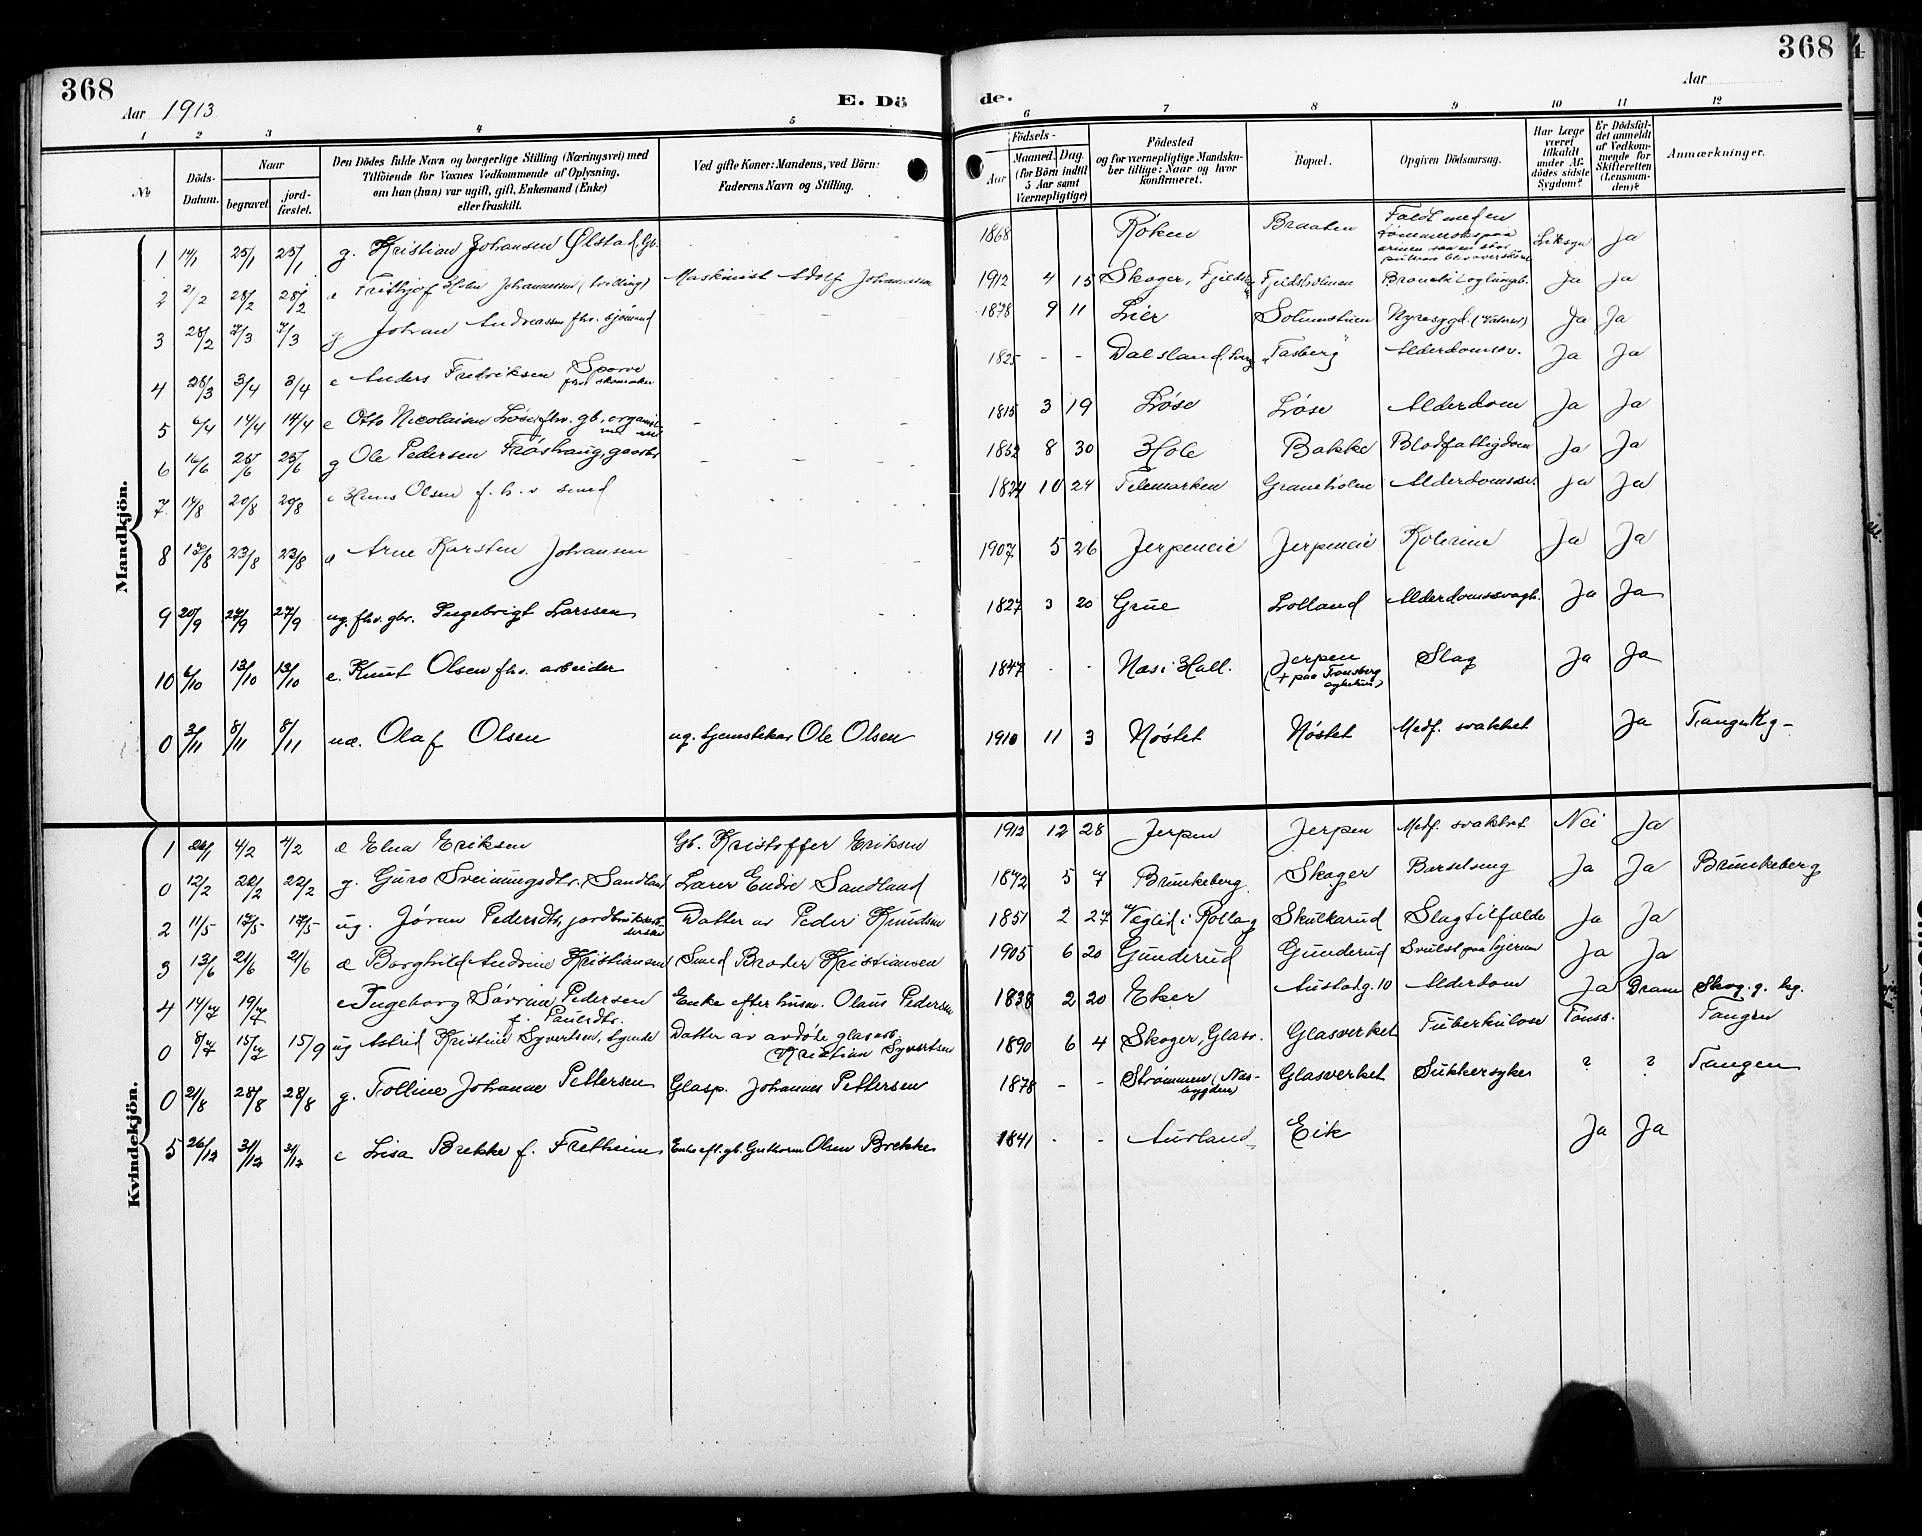 368
Aar 1913
E. Dö
de.
368
Aar
1 2 3 4 5 6 7 8 9 10 11 12
No
Döds-Datum.
Naar
begravet.
jord-fæstet.
Den Dödes fulde Navn og borgerlige Stilling (Næringsvei) med
Tilföiende for Voxnes Vedkommende af Oplysning,
om han (hun) var ugift, gift, Enkemand (Enke)
eller fraskilt.
Ved gifte Koner: Mandens, ved Börn:
Faderens Navn og Stilling.
Födsels-
Aar
Maaned. Dag.
(for Börn indtil
5 Aar samt
Værnepligtige)
Födested
og for værnepligtige Mandska-
ber tillige: Naar og hvor
konfirmeret.
Bopæl.
Opgiven Dödsaarsag.
Har Læge
været
tilkaldt
under Af-
dödes sidste
Sygdom?
Er Dödsfal-
det anmeldt
af Vedkom-
mende for
Skifteretten
(Lensman-
den)?
Anmærkninger.
Mandkjön.
1 14/1 25/1 25/1 g. Kristian Johansen Ølstad, Gb. 1868 Røken Braaten Faldt med en Liksyn Ja
2 2/2 28/2 28/2 e Frithjof Johannessen (tvilling) Maskinist Adolf Johannessen 1912 4 15 Skoger, Fjeldsholmen Bronkit og lungeb. Ja Ja
3 28/2 7/3 7/3 g Johan Andreassen fhv. sjømand 1878 9 11 Lier Solumstuen Nyresygd. Ja Ja
4 28/3 3/4 3/4 e Anders Fredriksen Sporve fhv. skomaker 1825 - - Dalsland, Sverig "Tasberg" Alderdomssv. Ja Ja
5 6/4 14/4 14/4 e Otto Nicolaisen Løse, fhv. gb., organist 1815 3 19 Løse Løse Alderdom Ja Ja
6 16/6 25/6 25/6 g Ole Pedersen Frøshaug, gaardbr 1832 8 30 Hole Bakke Blodfattigdom Ja Ja
7 14/8 20/8 20/8 e Hans Olsen f. h. v smed 1824 10 24 Telemarken Graneholm Alderdomssv. Ja Ja
8 18/8 23/8 23/8 e Arne Karsten Johansen 1907 5 26 Jerpeneie Jerpeneie Kolerine Ja Ja
9 20/9 27/9 27/9 ug. fhv. gbr. Ingebrigt Larssen 1827 3 20 Grue Lolland Alderdomssvagh. Ja Ja
10 6/10 13/10 13/10 e. Knut Olsen fhv. arbeider 1847 - - Næs i Hall. Jerpen (+ paa Tønsberg sykehus) Slag Ja Ja
0 3/11 8/11 8/11 ue. Olaf Olsen ug. tjenstekar Ole Olsen 1910 11 3 Nøstet Nøstet Medf. svakhet Ja Tangen Kg-
Kvindekjön.
1 26/1 4/2 4/2 e Elna Eriksen Gb. Kristoffer Eriksen 1912 12 28 Jerpen Jerpen Medf. svakhet Nei Ja
0 12/2 22/2 22/2 g. Guro Sveinungsdtr. Sandland Lærer Endre Sandland 1872 5 7 Brunkeberg Skoger Barselseng Ja Ja Brunkeberg
2 11/5 17/5 17/5 ug. Jøran Pedersdtr, jordbrukerske Datter av Peder Knudsen 1851 2 27 Veglid i Rollag Skulkerud Slagtilfælde Ja Ja
3 13/6 21/6 21/6 e Borghild Andrine Kristiansen Smed Broder Kristiansen 1905 6 20 Gunderud Gunderud Svulst paa hjernen Ja Ja
4 14/7 19/7 e Ingeborg Sørrine Pedersen f. Paulsdtr. Enke efter husm. Olaus Pedersen 1838 2 20 Eker Austadg. 10 Alderdom Ja Dram Skog. g. kg.
0 8/7 15/7 15/9 ug Astrid Kristine Syvertsen, syerske Datter av avdøde glasarb. Kristian Syvertsen 1890 6 4 Skoger, Glasv. Glasverket Tuberkulose Tønsb. Tangen
0 21/8 28/8 28/8 g. Tolline Johanne Pettersen Glasp. Johannes Pettersen 1878 - - Strømmen (Næsbygden) Glasverket Sukkersyke ? ? Tangen
5 26/12 31/12 31/12 e Lisa Brekke f. Fretheim Enke eft. gb. Guthorm Olsen Brekke 1841 - - Aurland Eik Ja Ja